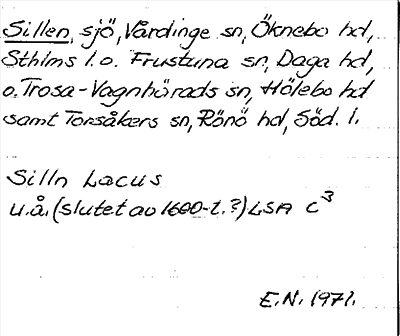 Sillen, sjö, Vårdinge sn, Öknebo hd,
Sthlms l. o. Frustuna sn, Daga hd,
o. Trosa-Vagnhärads sn, Hölebo hd
samt Torsåkers sn, Rönö hd, Söd. l.
Silln Lacus
u.å. (slutet av 1600-t.?) LSA C³
E.N. 1971.